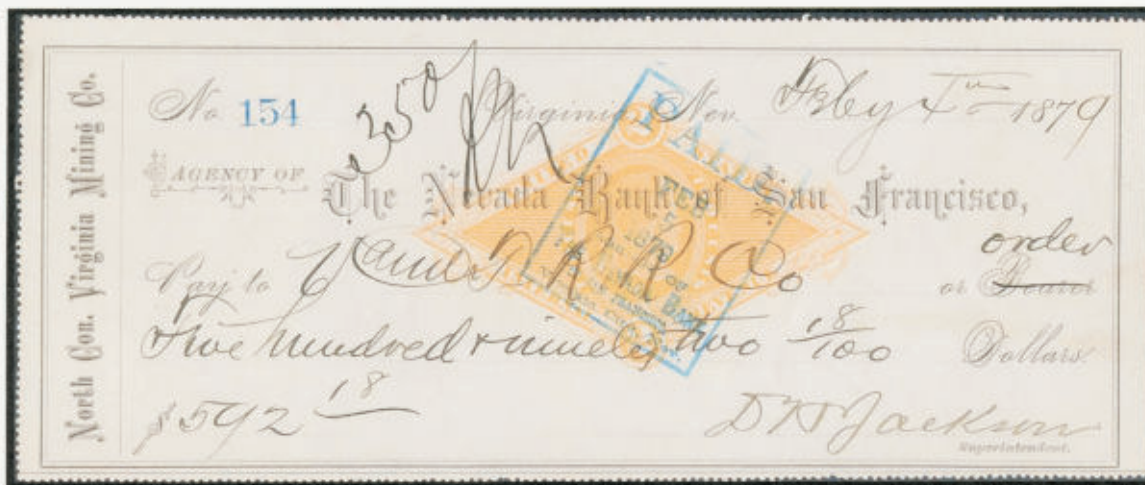 North Con. Virginia Mining Co.
No 154 Virginia, Nev. Feby 1879
AGENCY OF
The Nevada Bank of San Francisco,
Pay to V and T R R Co or Bearer order
Five hundred & ninety two 18/100 Dollars
$592 18
D H Jackson
Superintendent.
PAID
FEB